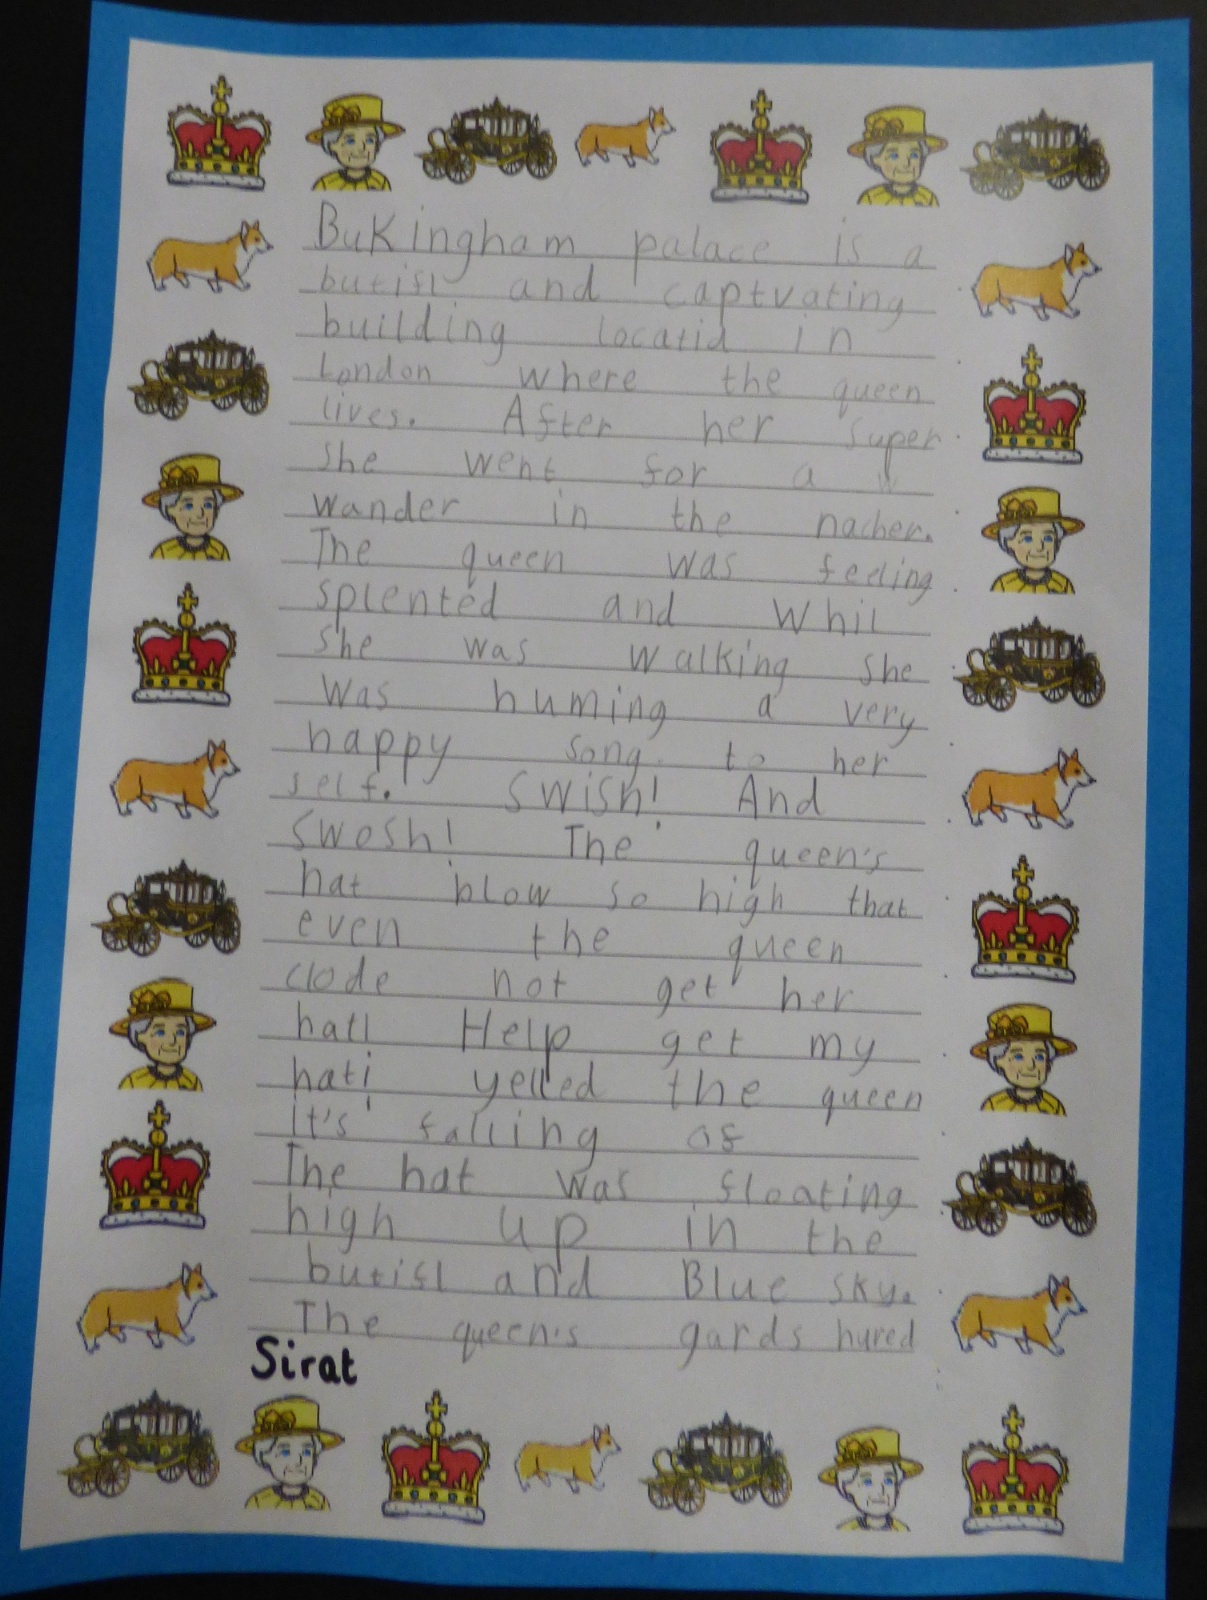 BuKingham palace is a
butifl and captvating
building locatid in
London where the queen
lives. After her super
she went for a
wander in the nacher.
The queen was feeling
splented and Whil
She was walking she
was huming a very
happy song to her
self. Swish! And
Swosh! The queen's
hat blow so high that
even the queen
clode not get her
hat! Help get my
hat! yelled the queen
it's falling of
The hat was floating
high up in the
butifl and Blue sky.
The queen's gards hured
Sirat